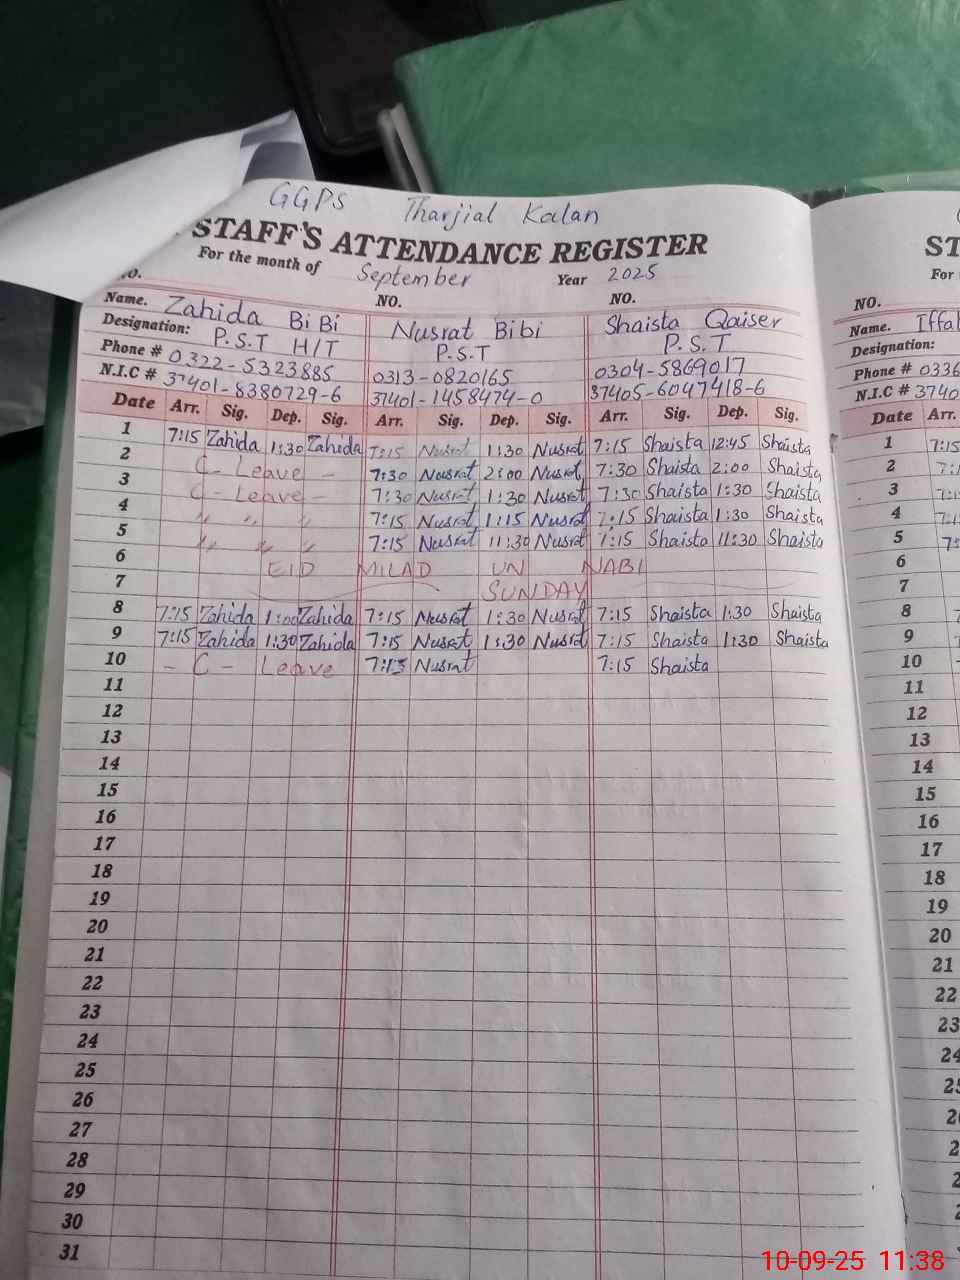 GGPS Tharjial Kalan
STAFF'S ATTENDANCE REGISTER
For the month of September Year 2025
NO. NO. NO.
Name. Zahida BiBi Nusrat Bibi Shaista Qaiser
Designation: P.S.T H/T P.S.T P.S.T
Phone # 0322-5323885 0313-0820165 0304-5869017
N.I.C # 37401-8380729-6 37401-1458474-0 37405-6047418-6
Date Arr. Sig. Dep. Sig. Arr. Sig. Dep. Sig. Arr. Sig. Dep. Sig.
1 7:15 Zahida 1:30 Zahida 7:15 Nusrat 1:30 Nusrat 7:15 Shaista 12:45 Shaista
2 C- Leave - 7:30 Nusrat 2:00 Nusrat 7:30 Shaista 2:00 Shaista
3 C- Leave - 7:30 Nusrat 1:30 Nusrat 7:30 Shaista 1:30 Shaista
4 " " " 7:15 Nusrat 1:15 Nusrat 7:15 Shaista 1:30 Shaista
5 " " " 7:15 Nusrat 11:30 Nusrat 7:15 Shaista 11:30 Shaista
6 EID MILAD UN NABI
7 SUNDAY
8 7:15 Zahida 1:00 Zahida 7:15 Nusrat 1:30 Nusrat 7:15 Shaista 1:30 Shaista
9 7:15 Zahida 1:30 Zahida 7:15 Nusrat 1:30 Nusrat 7:15 Shaista 1:30 Shaista
10 - C - Leave 7:15 Nusrat 7:15 Shaista
11
12
13
14
15
16
17
18
19
20
21
22
23
24
25
26
27
28
29
30
31
ST
For
NO.
Name. Iffat
Designation:
Phone # 0336
N.I.C # 3740
Date Arr.
1 7:15
2
3
4
5
6
7
8
9
10
11
12
13
14
15
16
17
18
19
20
21
22
23
24
10-09-25 11:38